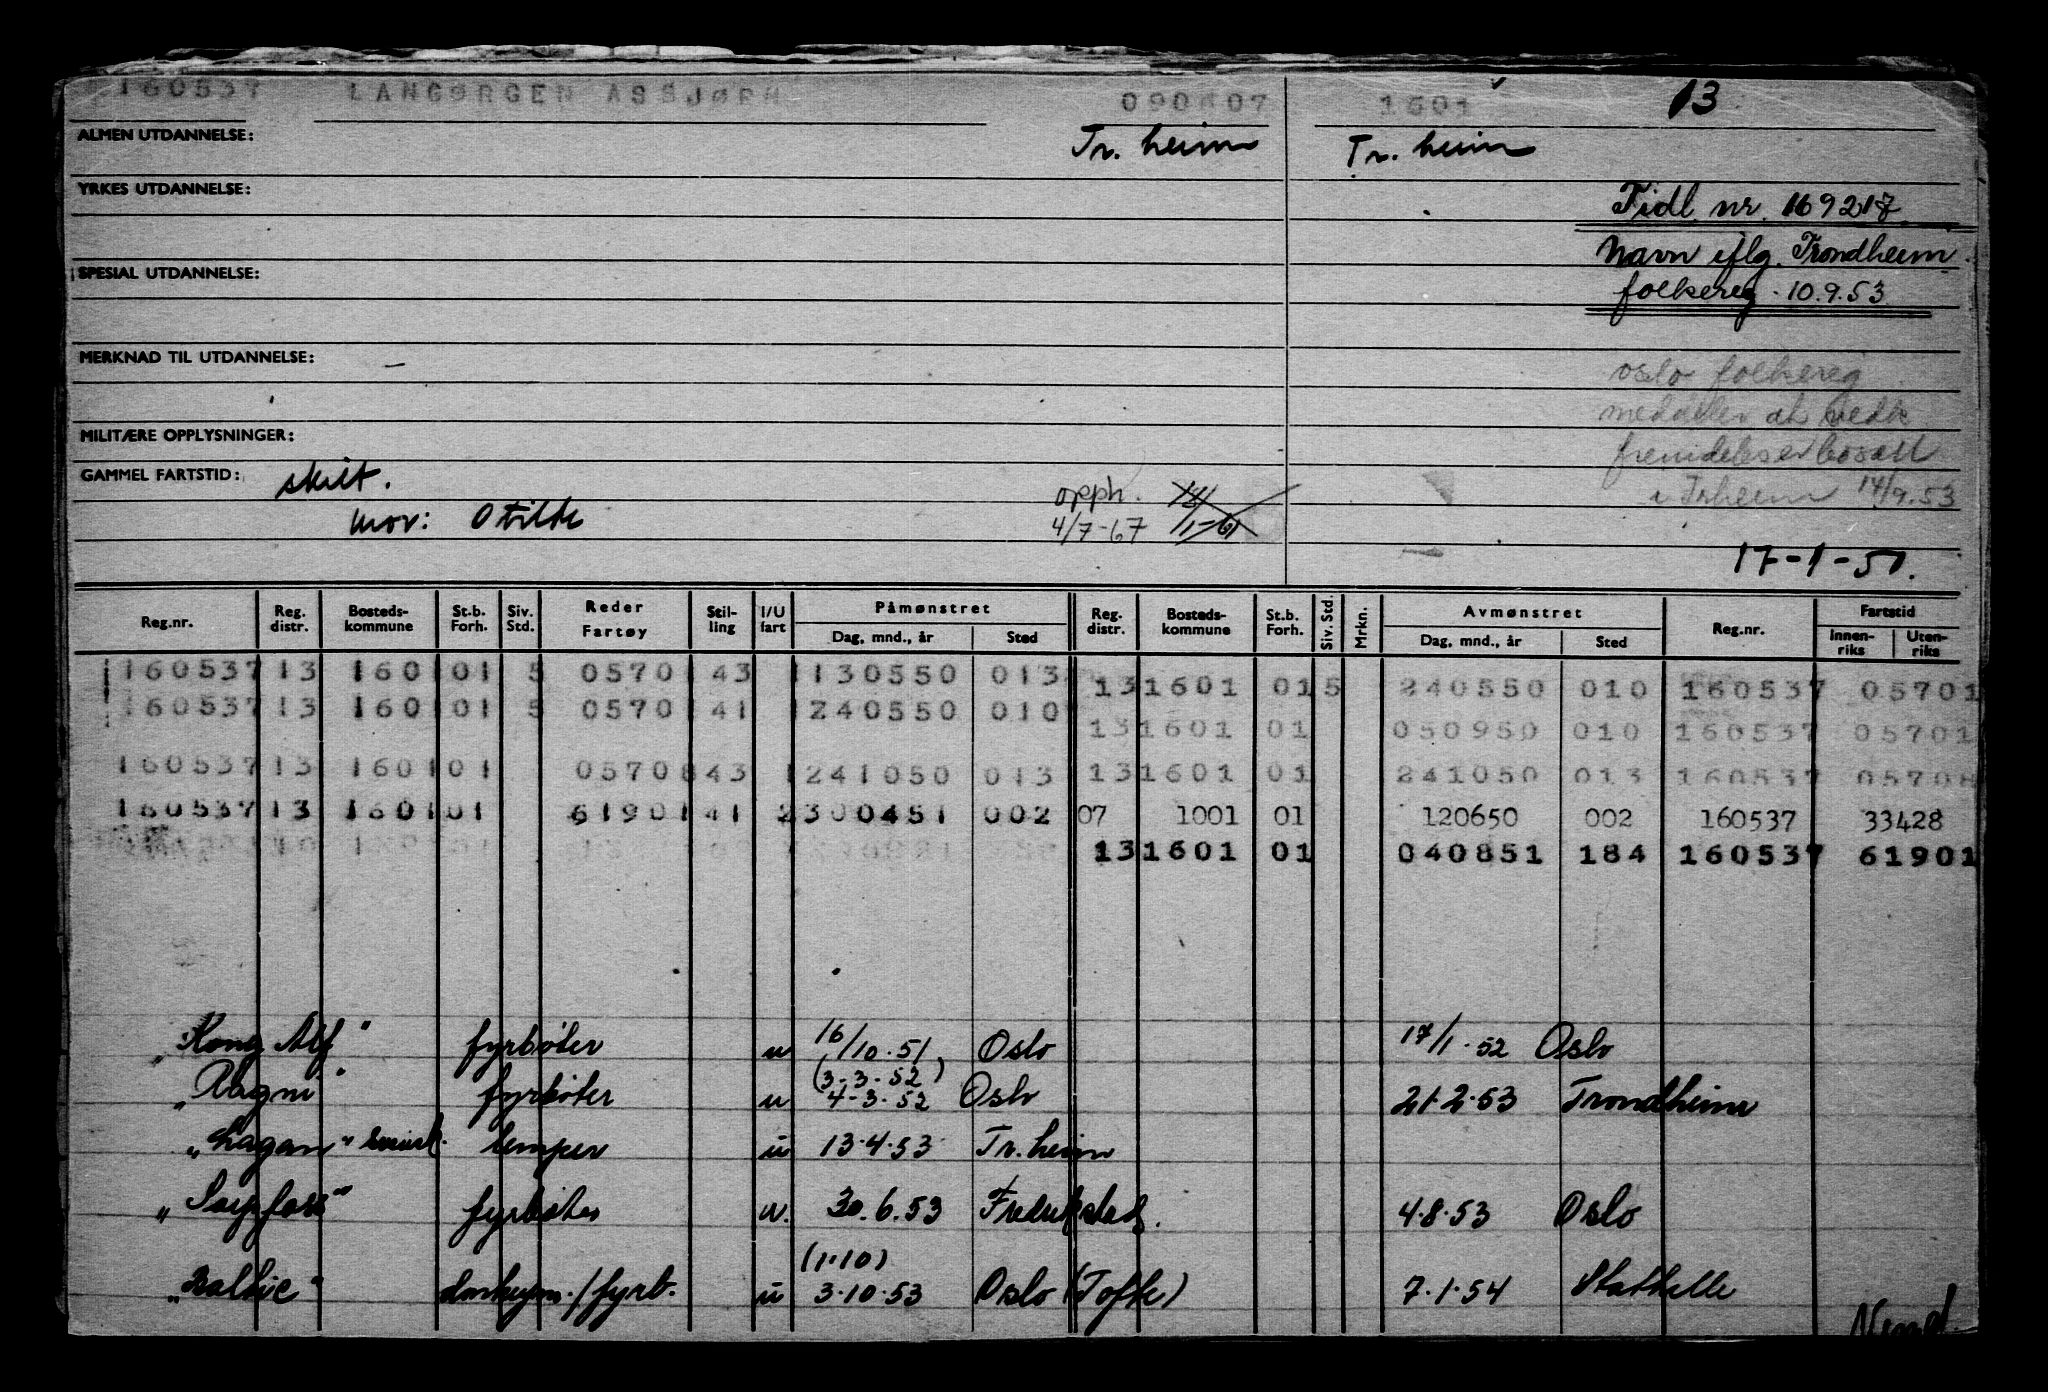 160537 LANGØRGEN ASBJØRN 090607 1601 13
ALMEN UTDANNELSE: Tr. heim Tr. heim
YRKES UTDANNELSE:
Tidl. nr. 169217
Navn iflg. Trondheim
SPESIAL UTDANNELSE:
folkereg. 10.9.53
MERKNAD TIL UTDANNELSE:
oslo folkereg
meddeler at vedk
MILITÆRE OPPLYSNINGER:
fremdeles er bosatt
GAMMEL FARTSTID: skilt.
i Trheim 14/9.53
mor: Otilie
opph.
4/7-67
17-1-51.
Reg.nr. Reg. distr. Bosteds- kommune St.b. Forh. Siv. Std. Reder Fartøy Stil- ling I/U fart Påmønstret Dag, mnd., år Sted Reg. distr. Bosteds- kommune St.b. Forh. Siv. Std. Mrkn. Avmønstret Dag, mnd., år Sted Reg.nr. Fartstid Innen- riks Uten- riks
160537 13 1601 01 5 0570 1 43 1 130550 013 13 1601 01 5 240550 010 160537 05701
160537 13 1601 01 5 0570 1 41 1 240550 010 13 1601 01 050950 010 160537 05701
160537 13 1601 01 0570 8 43 1 241050 013 13 1601 01 241050 013 160537 05708
160537 13 1601 01 6190 1 41 2 300451 002 07 1001 01 120650 002 160537 33428
13 1601 01 040851 184 160537 61901
"Kong Alf" fyrbøter u 16/10.51 Oslo 17/1.52 Oslo
(3-3-52)
"Ragni" fyrbøter u 4-3-52 Oslo 21.2.53 Trondheim
"Lagan" lemper u 13.4.53 Tr. heim
fyrbøter u. 30.6.53 Fredrikstad. 4.8.53 Oslo
(1.10)
"Baltic" donkeym./fyrb. u 3.10.53 Oslo (Tofte) 7.1.54 Stathelle